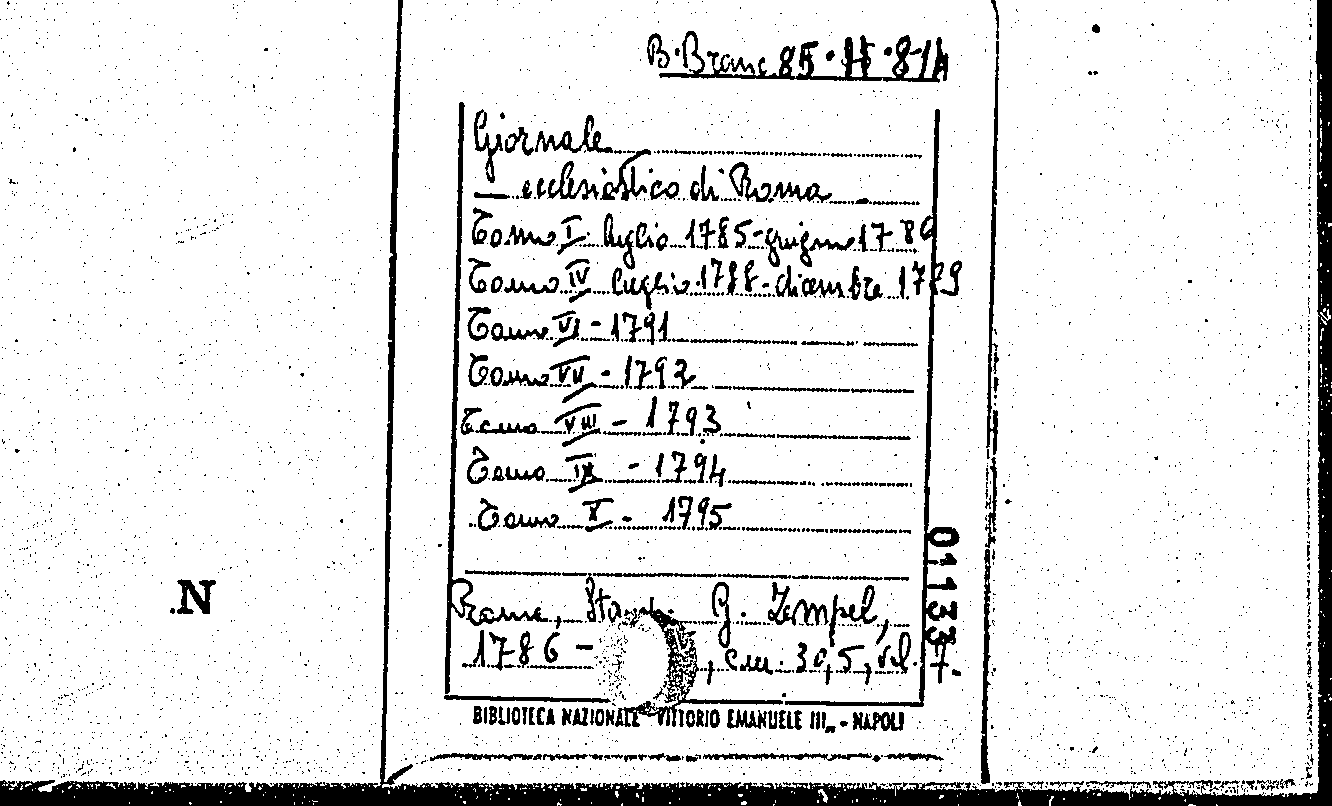 B. Branc. 85. H. 8/14
Giornale
— ecclesiastico di Roma
Tomo I luglio 1785-giugno 1786
Tomo IV luglio 1788-dicembre 1789
Tomo VI - 1791
Tomo VII - 1792
Tomo VIII - 1793
Tomo IX - 1794
Tomo X - 1795
Roma, G. Zempel,
1786 - , cm. 30,5, vol. 7.
BIBLIOTECA NAZIONALE VITTORIO EMANUELE III„ - NAPOLI
01133
N